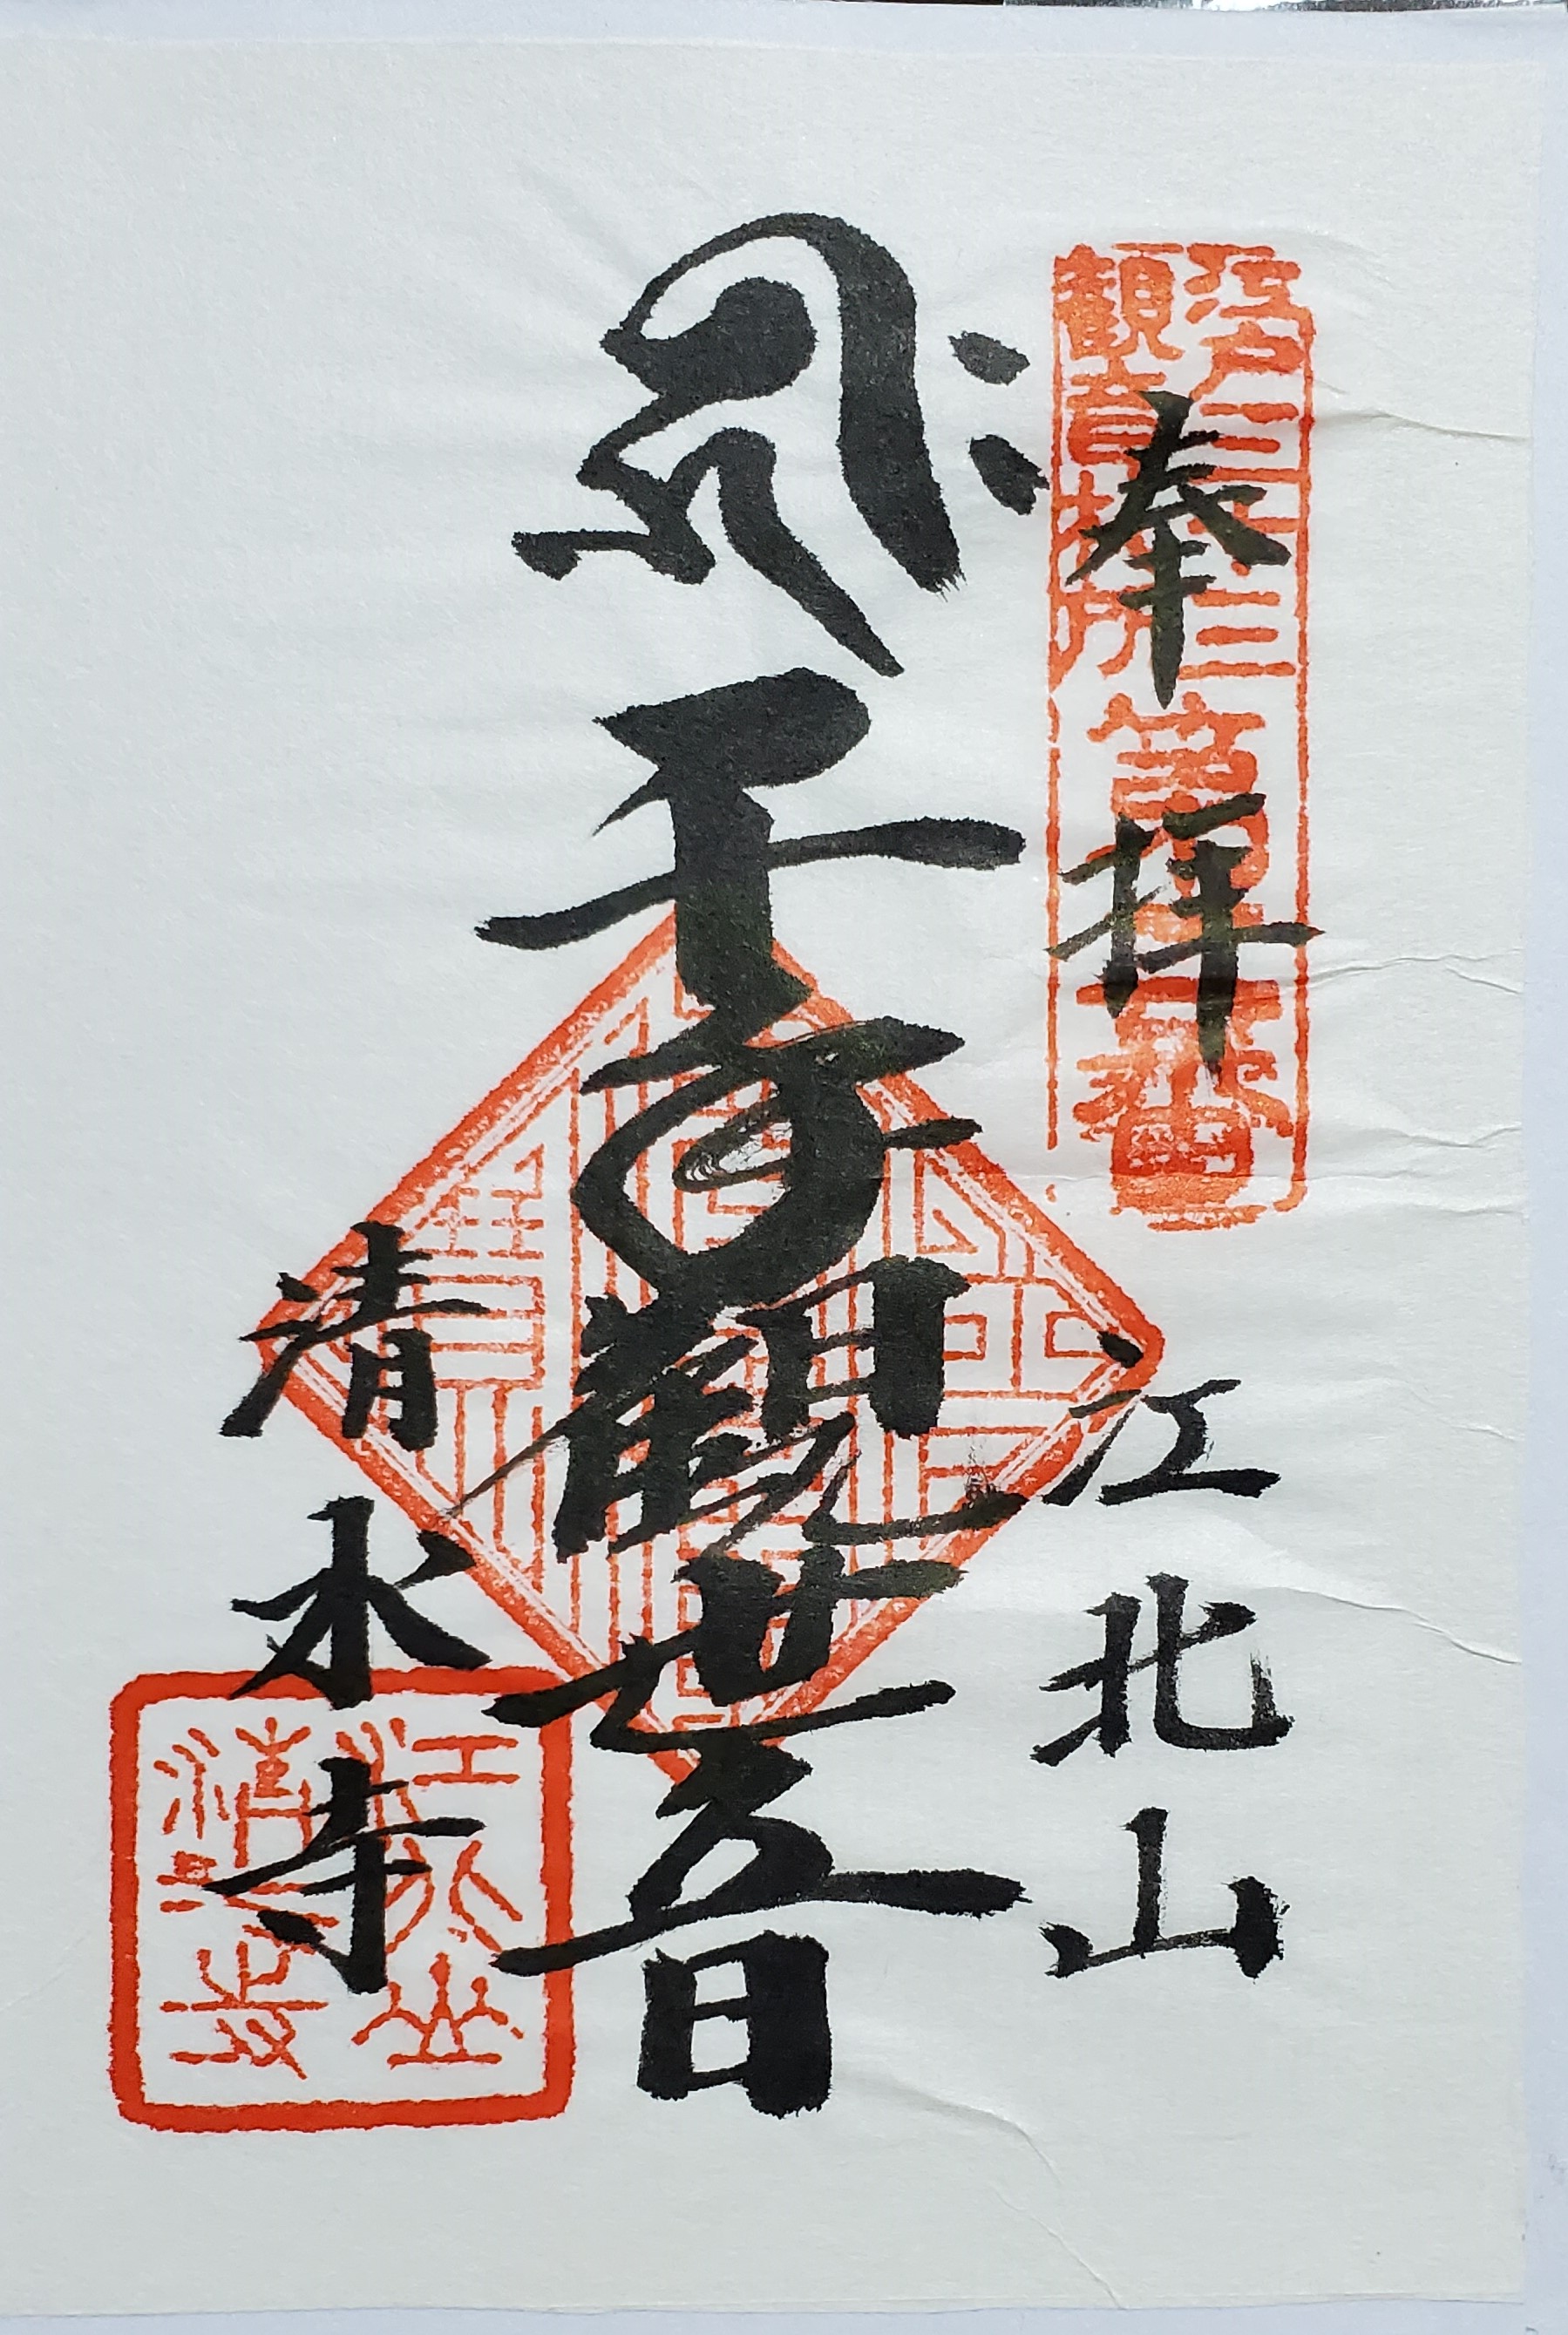 奉拝
江戸三十三
観音札所
第二番
江北山
千手觀世音
清水寺
江北山
清水寺